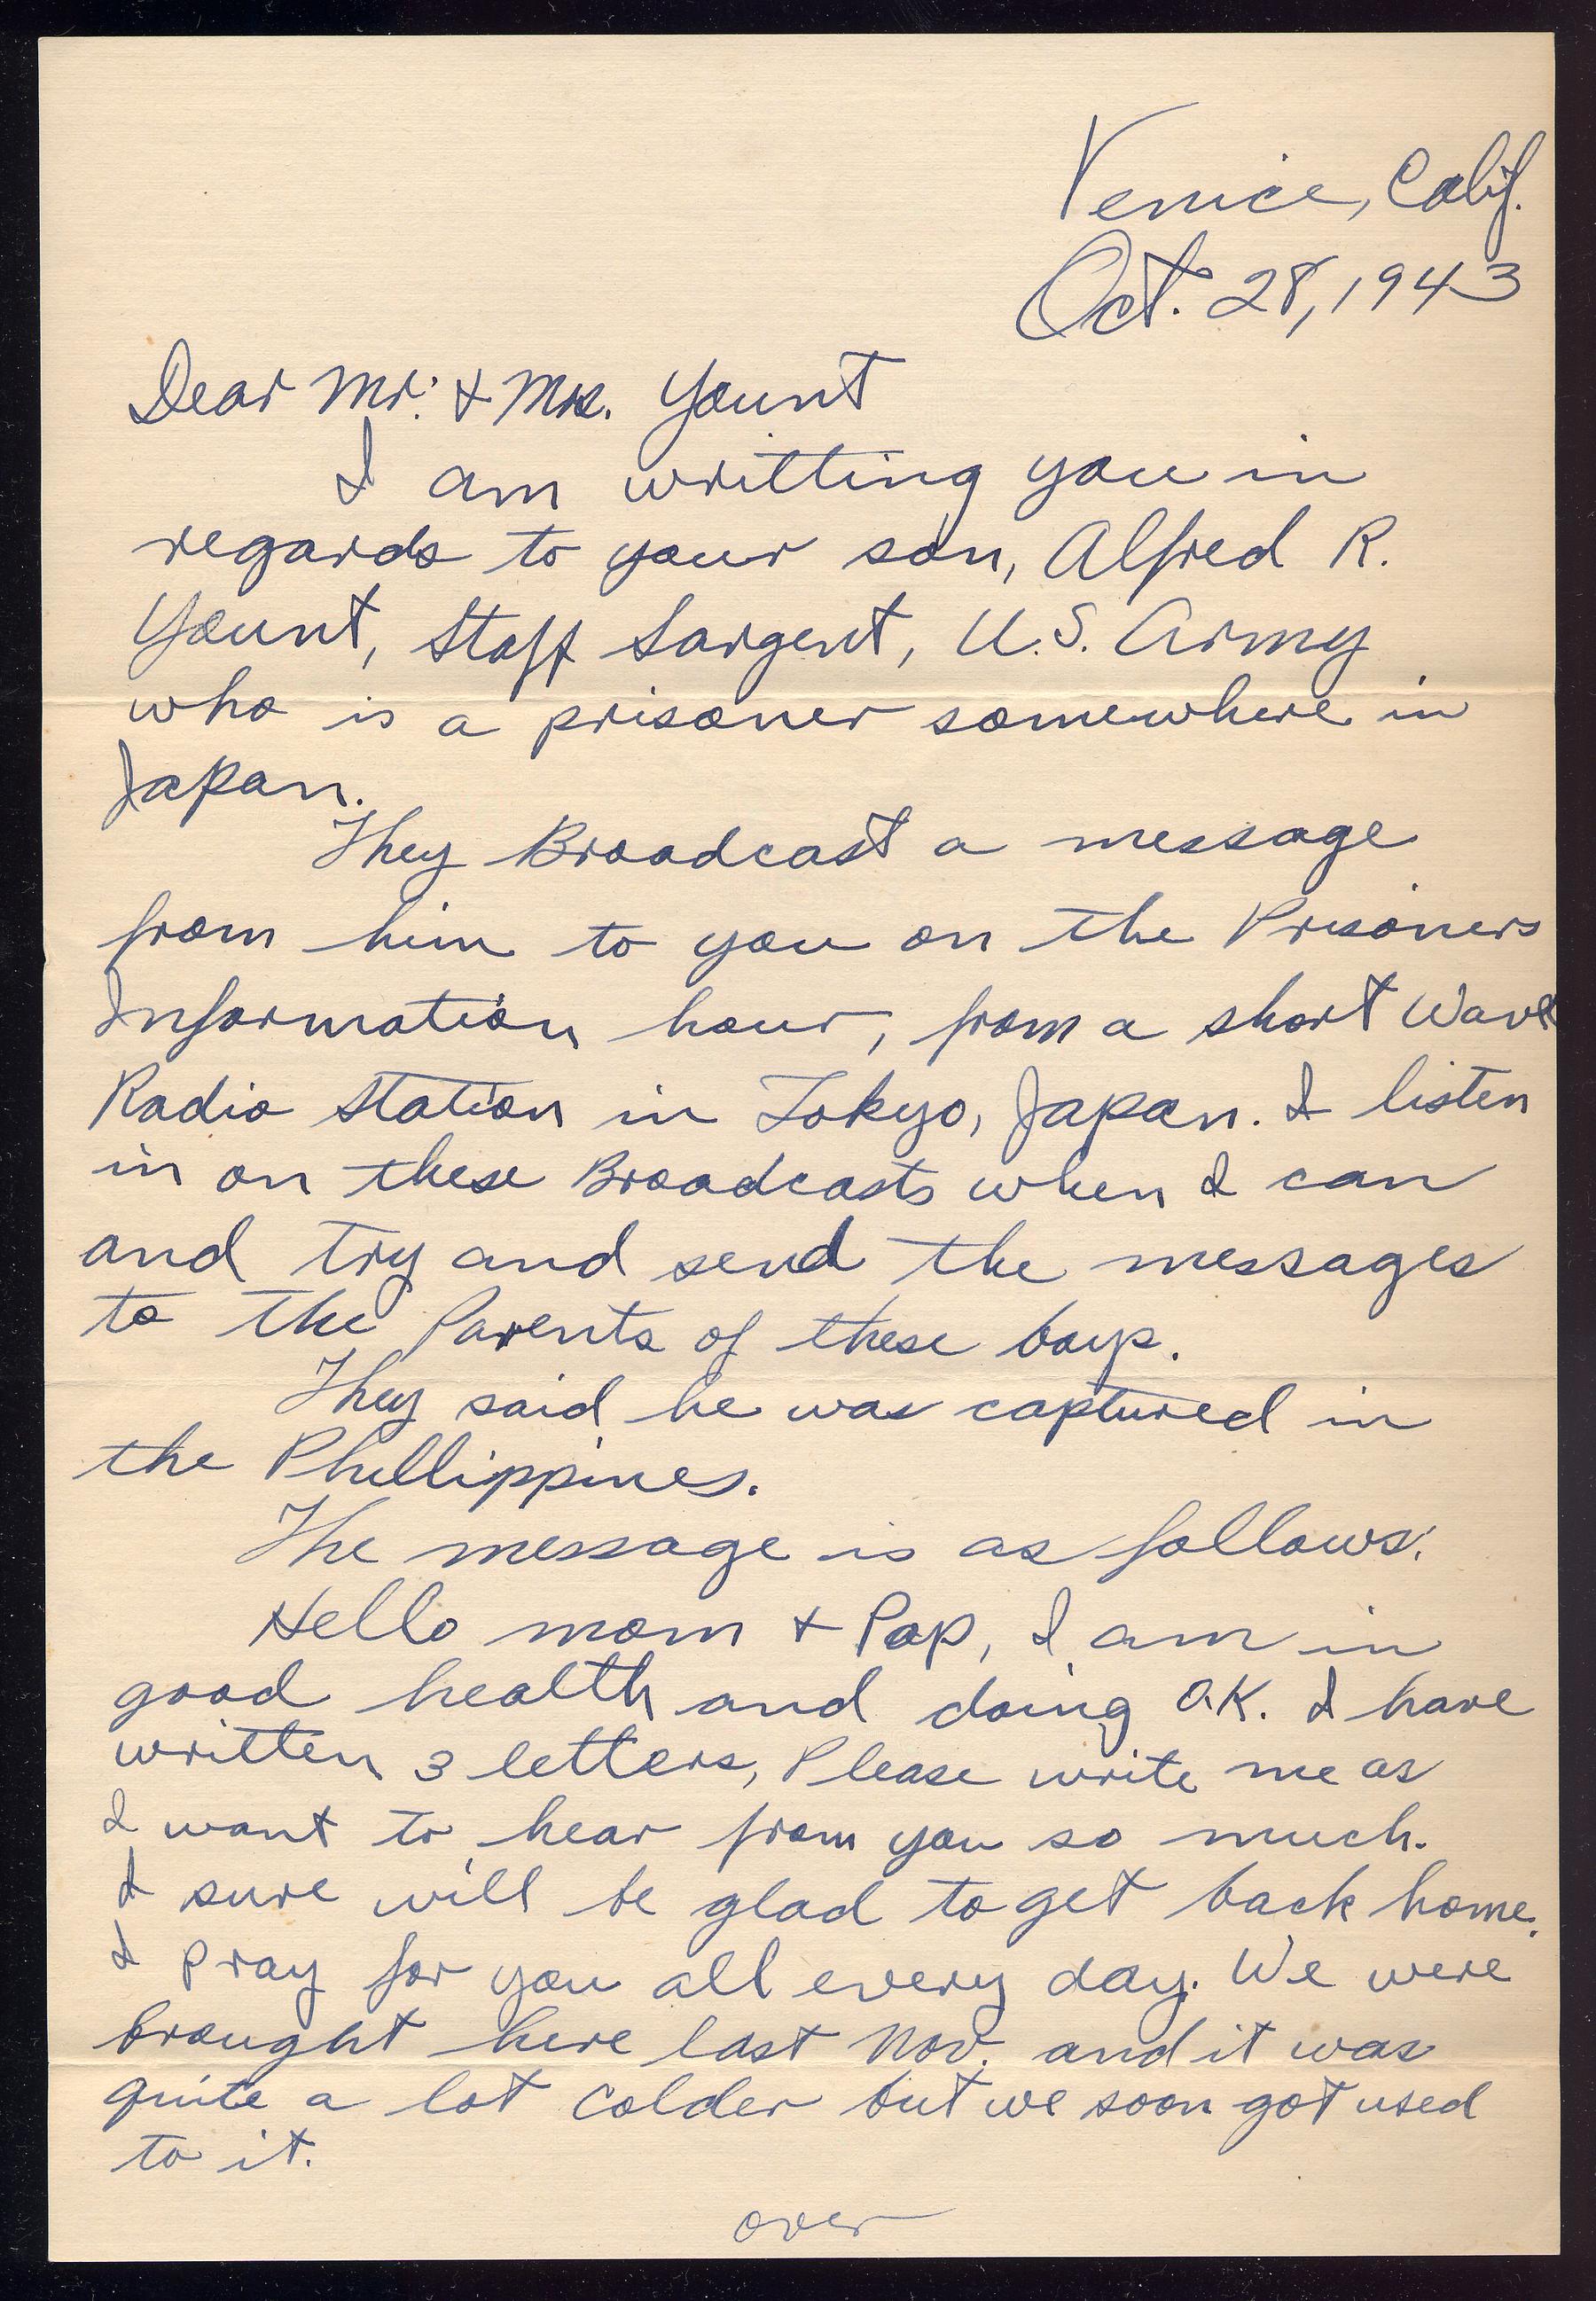 Venice, Calif.
Oct. 28, 1943
Dear Mr. & Mrs. Yount
I am writting you in
regards to your son, Alfred R.
Yount, Staff Sargent, U.S. Army
who is a prisoner somewhere in
Japan.
They Broadcast a message
from him to you on the Prisoners
Information hour, from a short Wave
Radio Station in Tokyo, Japan. I listen
in on these Broadcasts when I can
and try and send the messages
to the Parents of these boys.
They said he was captured in
the Phillippines.
The message is as follows:
Hello mom & Pap, I am in
good health and doing O.K. I have
written 3 letters, Please write me as
I want to hear from you so much.
I sure will be glad to get back home.
I pray for you all every day. We were
brought here last Nov. and it was
quite a lot colder but we soon got used
to it.
over